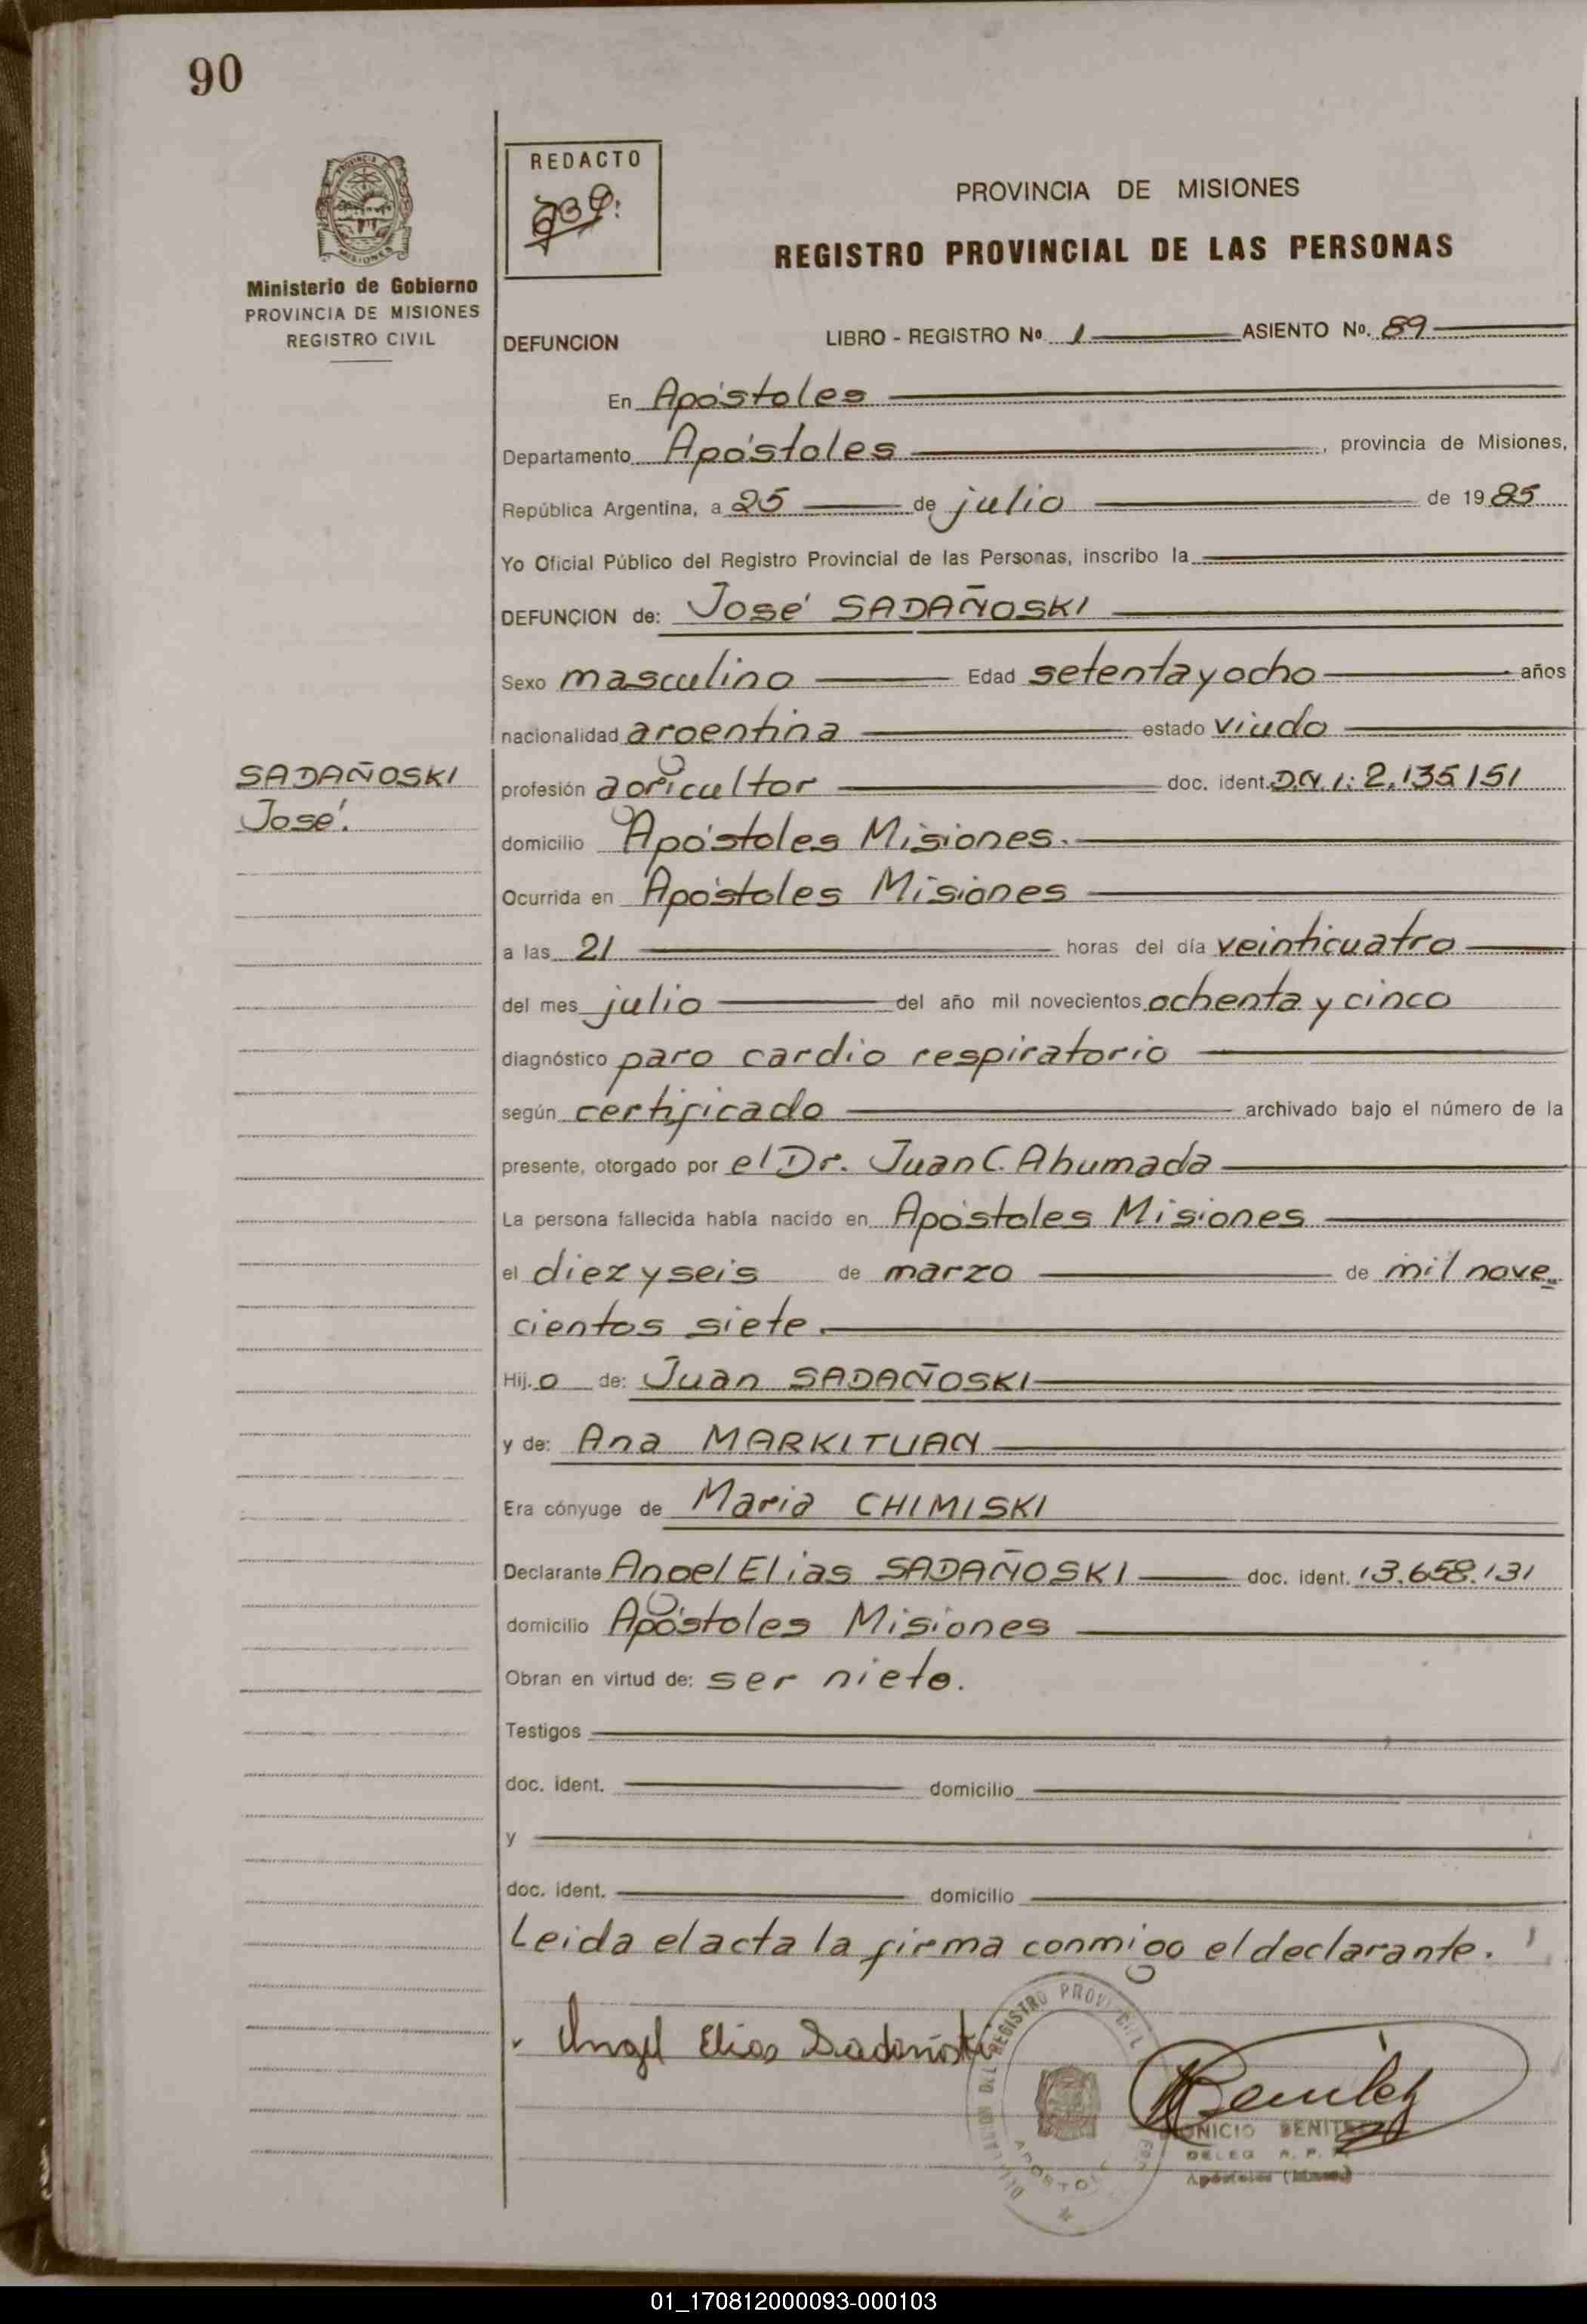 90
REDACTO
PROVINCIA DE MISIONES
REGISTRO PROVINCIAL DE LAS PERSONAS
Ministerio de Gobierno
PROVINCIA DE MISIONES
REGISTRO CIVIL
DEFUNCION LIBRO - REGISTRO Nº 1 ASIENTO Nº. 89
En Apóstoles
Departamento Apóstoles, provincia de Misiones,
República Argentina, a 25 de julio de 1985
Yo Oficial Público del Registro Provincial de las Personas, inscribo la
DEFUNCION de: José SADAÑOSKI
Sexo masculino Edad setenta y ocho años
nacionalidad argentina estado viudo
SADAÑOSKI
José.
profesión agricultor doc. ident. D.N.I: 2.135.151
domicilio Apóstoles Misiones.
Ocurrida en Apóstoles Misiones
a las 21 horas del día veinticuatro
del mes julio del año mil novecientos ochenta y cinco
diagnóstico paro cardio respiratorio
según certificado archivado bajo el número de la
presente, otorgado por el Dr. Juan C. Ahumada
La persona fallecida había nacido en Apóstoles Misiones
el diez y seis de marzo de mil nove
cientos siete.
Hij.o de: Juan SADAÑOSKI
y de: Ana MARKITUAN
Era cónyuge de Maria CHIMISKI
Declarante Angel Elias SADAÑOSKI doc. ident. 13.658.131
domicilio Apóstoles Misiones
Obran en virtud de: ser nieto.
Testigos
doc. ident. domicilio
y
doc. ident. domicilio
Leida el acta la firma conmigo el declarante.
Angel Elias Sadañoski
Benitez
DEL REGISTRO PROVINCIAL
ONICIO BENITEZ
DELEG R. P.
Apóstoles
01_170812000093-000103